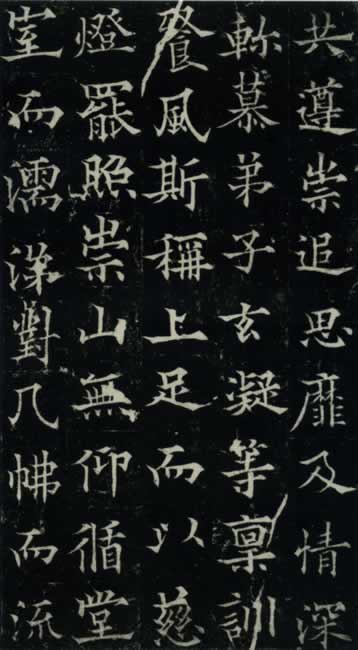 共遵崇追思靡及情深
軫慕弟子玄凝等稟訓
餐風斯稱上足而以慈
燈罷照崇山無仰循堂
室而濡對几而流